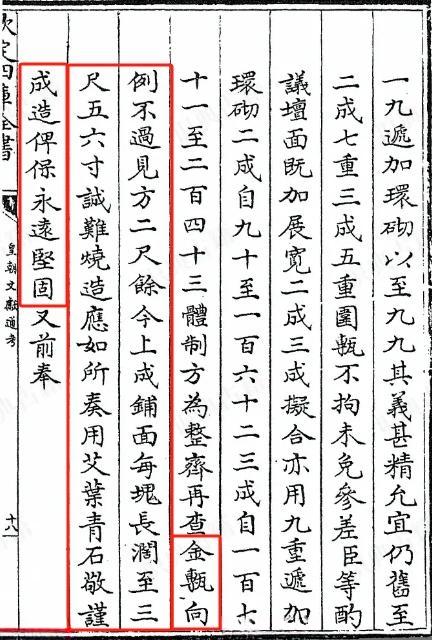 一九遞加環砌以至九九其義甚精允宜仍舊至
二成七重三成五重圍甎不拘未免參差臣等酌
議壇面既加展寬二成三成擬合亦用九重遞加
環砌二成自九十至一百六十二三成自一百六
十一至二百四十三體制方為整齊再查金甎向
例不過見方二尺餘今上成鋪面每塊長濶至三
尺五六寸誠難燒造應如所奏用艾葉青石敬謹
成造俾保永遠堅固又前奉
欽定四庫全書
皇朝文獻通考
十八